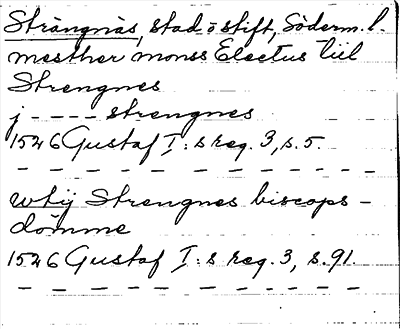 Strängnäs, stad o stift, Söderm. l.
mesther monss Electus tiil
Strengnes
j - - - - strengnes
1526 Gustaf I:s reg. 3, s. 5.
- - - - - - - - - - -
wtij Strengnes biscops -
dömme
1526 Gustaf I:s reg. 3, s. 91.
- - - - - - - - - - -